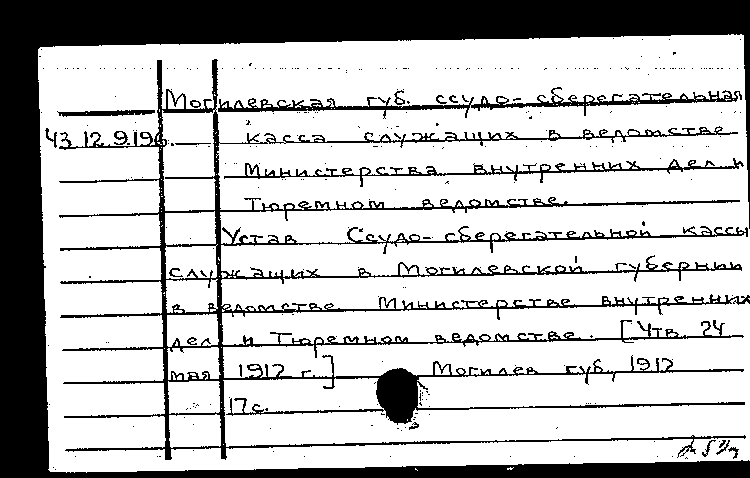 Могилевская губ. ссудо-сберегательная
43.12.9.196. касса служащих в ведомстве
Министерства внутренних дел и
Тюремном ведомстве.
Устав Ссудо-сберегательной кассы
служащих в Могилевской губернии
в ведомстве Министерства внутренних
дел и Тюремном ведомстве. [Утв. 24
мая 1912 г.] Могилев губ., 1912
17с.